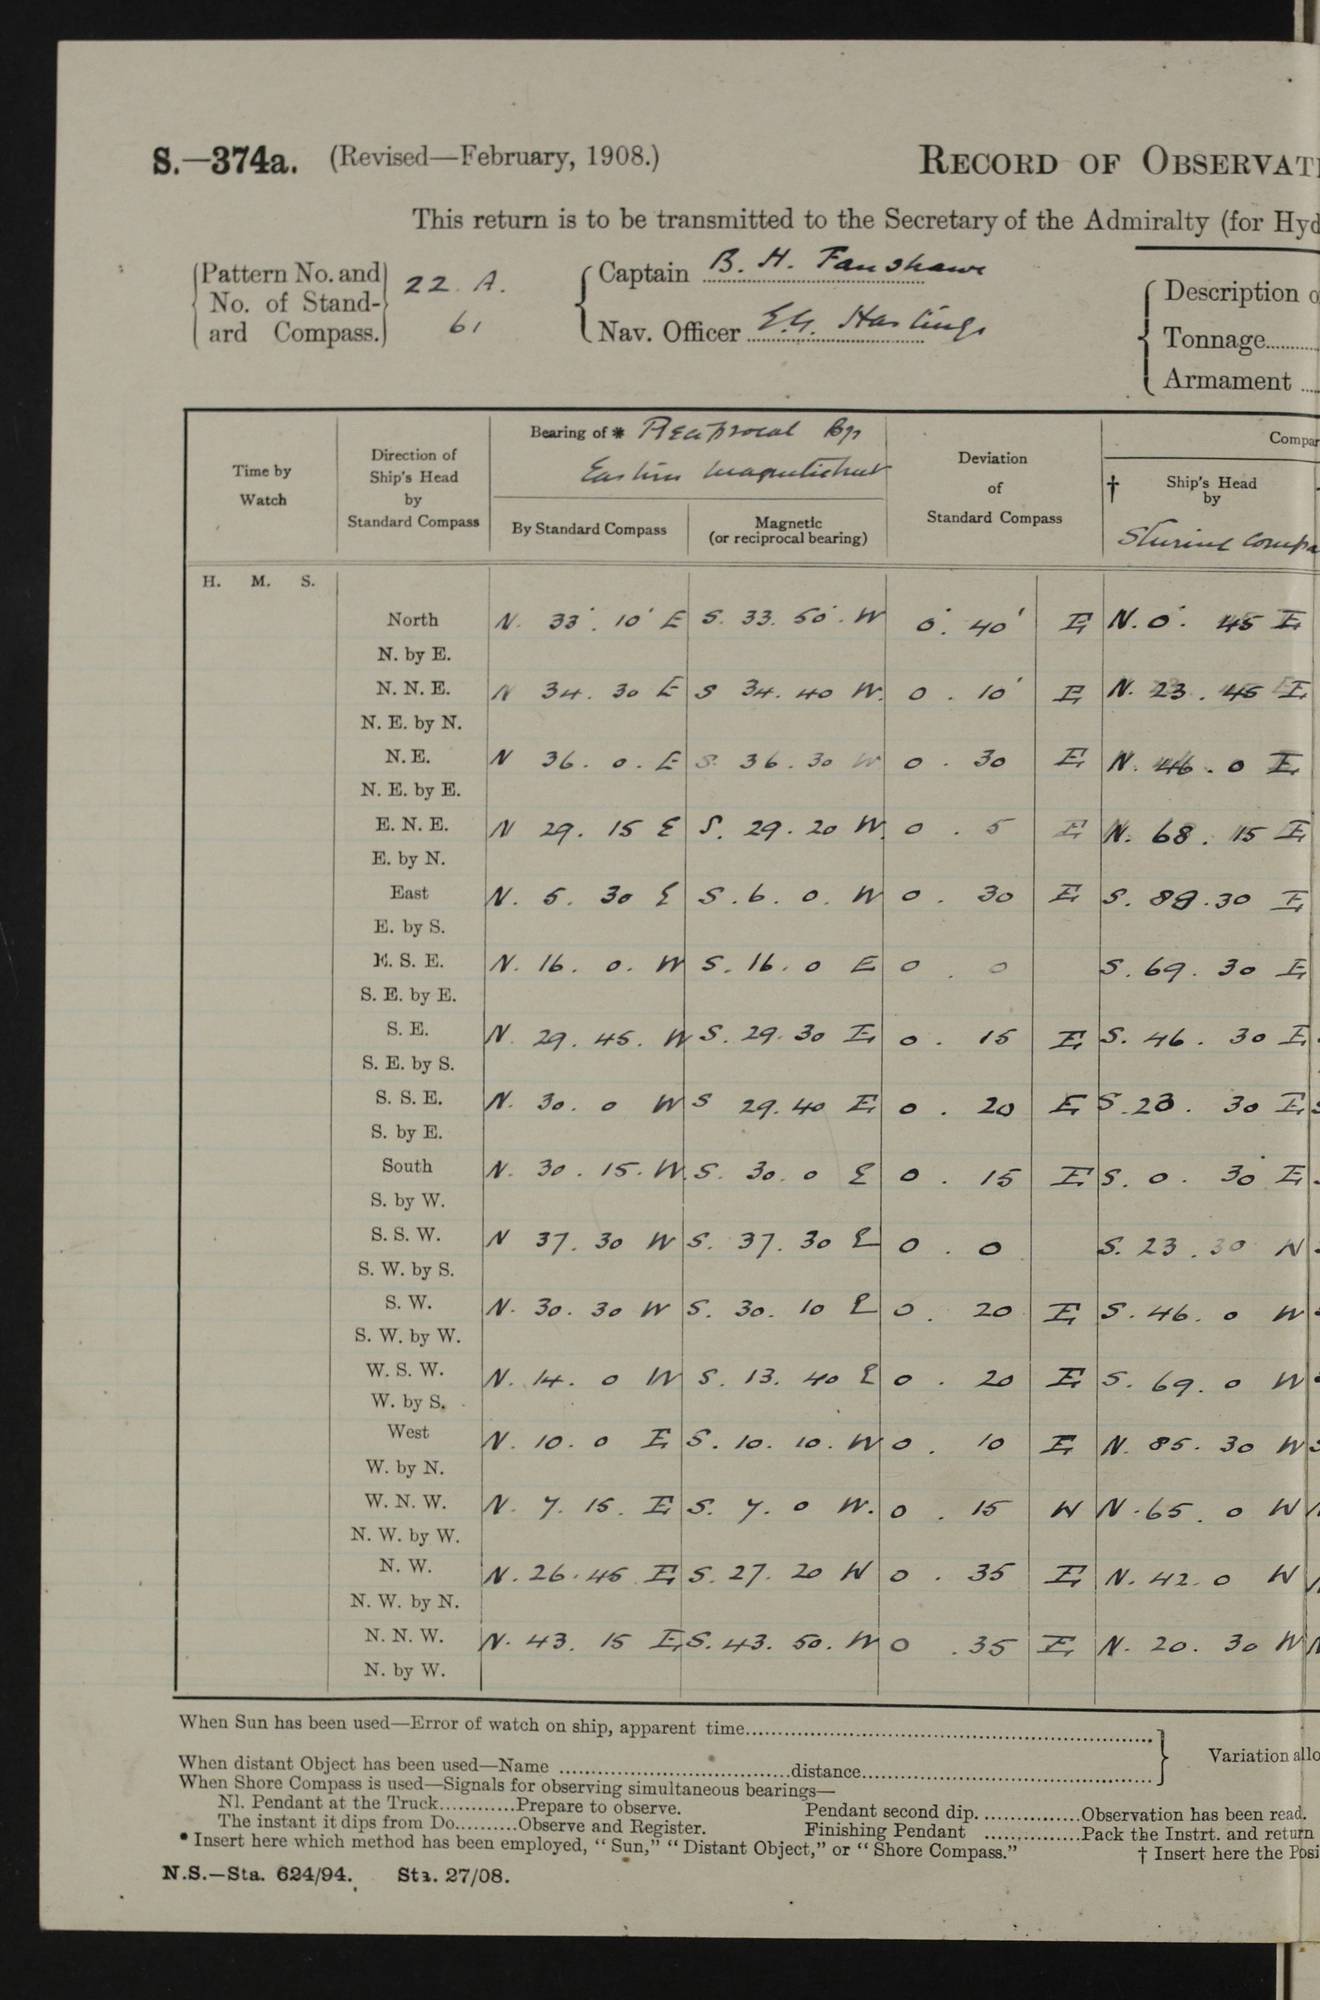 S.—374a. (Revised—February, 1908.) RECORD OF OBSERVATI
This return is to be transmitted to the Secretary of the Admiralty (for Hyd
Pattern No. and No. of Standard Compass. 22 A. 61
Captain B. H. Fanshawe
Nav. Officer E.G. Hastings
Description o
Tonnage
Armament
Time by Watch
Direction of Ship's Head by Standard Compass
Bearing of * Reciprocal by
Eastern Magnetic hut
By Standard Compass
Magnetic (or reciprocal bearing)
Deviation of Standard Compass
Compar
† Ship's Head by
H. M. S.
North N. 33°. 10' E S. 33. 50'. W 0°. 40' E N. 0°. 45 E
N. by E.
N. N. E. N 34. 30 E S 34. 40 W. 0. 10' E N. 23. 45 E
N. E. by N.
N. E. N 36. 0. E S. 36. 30 W 0. 30 E N. 46. 0 E
N. E. by E.
E. N. E. N 29. 15 E S. 29. 20 W. 0. 5 E N. 68. 15 E
E. by N.
East N. 5. 30 E S. 6. 0. W 0. 30 E S. 89. 30 E
E. by S.
E. S. E. N. 16. 0. W S. 16. 0 E 0. 0 S. 69. 30 E
S. E. by E.
S. E. N. 29. 45. W S. 29. 30 E 0. 15 E S. 46. 30 E
S. E. by S.
S. S. E. N. 30. 0 W S 29. 40 E 0. 20 E S. 23. 30 E
S. by E.
South N. 30. 15. W. S. 30. 0 E 0. 15 E S. 0. 30 E
S. by W.
S. S. W. N 37. 30 W S. 37. 30 E 0. 0 S. 23. 30 W
S. W. by S.
S. W. N. 30. 30 W S. 30. 10 E 0. 20 E S. 46. 0 W
S. W. by W.
W. S. W. N. 14. 0 W S. 13. 40 E 0. 20 E S. 69. 0 W
W. by S.
West N. 10. 0 E S. 10. 10. W 0. 10 E N. 85. 30 W
W. by N.
W. N. W. N. 7. 15. E S. 7. 0 W. 0. 15 W N. 65. 0 W
N. W. by W.
N. W. N. 26. 45 E S. 27. 20 W 0. 35 E N. 42. 0 W
N. W. by N.
N. N. W. N. 43. 15 E S. 43. 50. W 0. 35 E N. 20. 30 W
N. by W.
When Sun has been used—Error of watch on ship, apparent time
When distant Object has been used—Name distance
Variation allo
When Shore Compass is used—Signals for observing simultaneous bearings—
Nl. Pendant at the Truck............Prepare to observe. Pendant second dip................Observation has been read.
The instant it dips from Do..........Observe and Register. Finishing Pendant ................Pack the Instrt. and return
* Insert here which method has been employed, "Sun," "Distant Object," or "Shore Compass." † Insert here the Posi
N.S.—Sta. 624/94. Sta. 27/08.